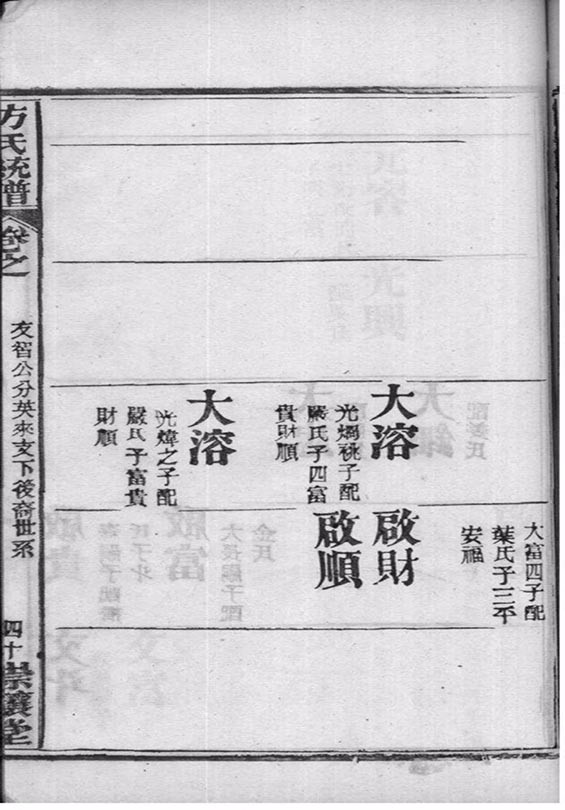 大富四子配
葉氏子三平
安福
大溶
光祧子配
嚴氏子四富
貴財順
啟財
啟順
大溶
光煒之子配
嚴氏子富貴
財順
方氏統譜
卷之
友智公分英來支下後裔世系
四十
崇讓堂